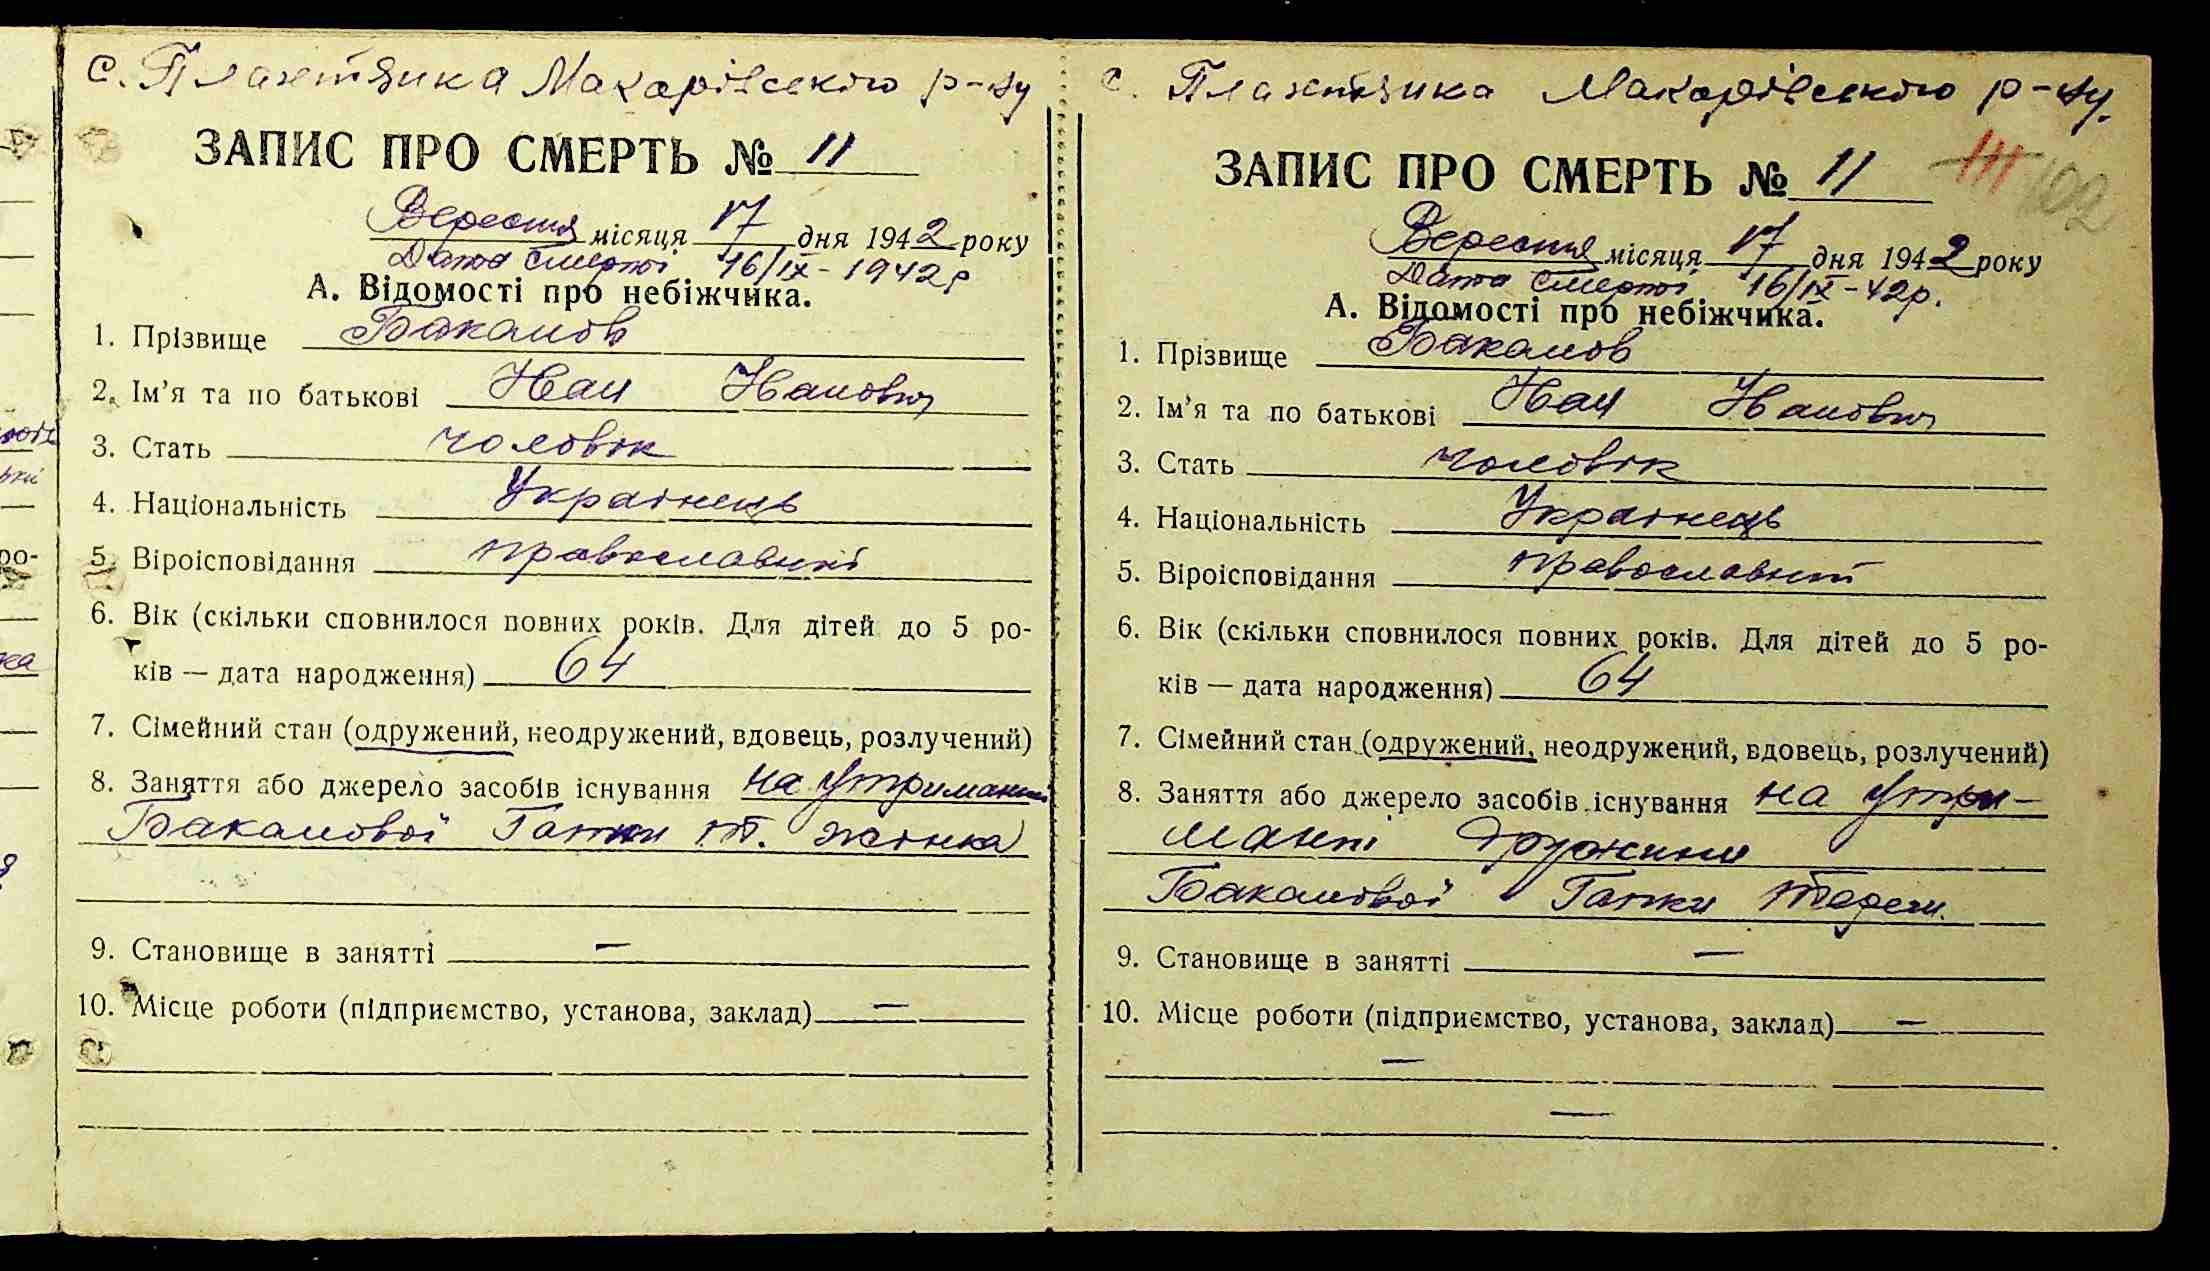 с. Плахтянка Макарівського р-ну
ЗАПИС ПРО СМЕРТЬ № 11
Вересня місяця 17 дня 1942 року
Дата смерті 16/IX-1942р
А. Відомості про небіжчика.
1. Прізвище Баканов
2. Ім'я та по батькові Иван Иванович
3. Стать чоловік
4. Національність Українець
5. Віроісповідання православний
6. Вік (скільки сповнилося повних років. Для дітей до 5 ро-
ків — дата народження) 64
7. Сімейний стан (одружений, неодружений, вдовець, розлучений)
8. Заняття або джерело засобів існування на утриманні
Баканової Гапки т. жінка
9. Становище в занятті —
10. Місце роботи (підприємство, установа, заклад) —
с. Плахтянка Макарівського р-ну.
ЗАПИС ПРО СМЕРТЬ № 11
111 102
Вересня місяця 17 дня 1942 року
Дата смерті 16/IX-42р.
А. Відомості про небіжчика.
1. Прізвище Баканов
2. Ім'я та по батькові Иван Иванович
3. Стать чоловік
4. Національність Українець
5. Віроісповідання православний
6. Вік (скільки сповнилося повних років. Для дітей до 5 ро-
ків — дата народження) 64
7. Сімейний стан (одружений, неодружений, вдовець, розлучений)
8. Заняття або джерело засобів існування на утри-
манні дружини
Баканової Гапки
9. Становище в занятті —
10. Місце роботи (підприємство, установа, заклад) —
—
—